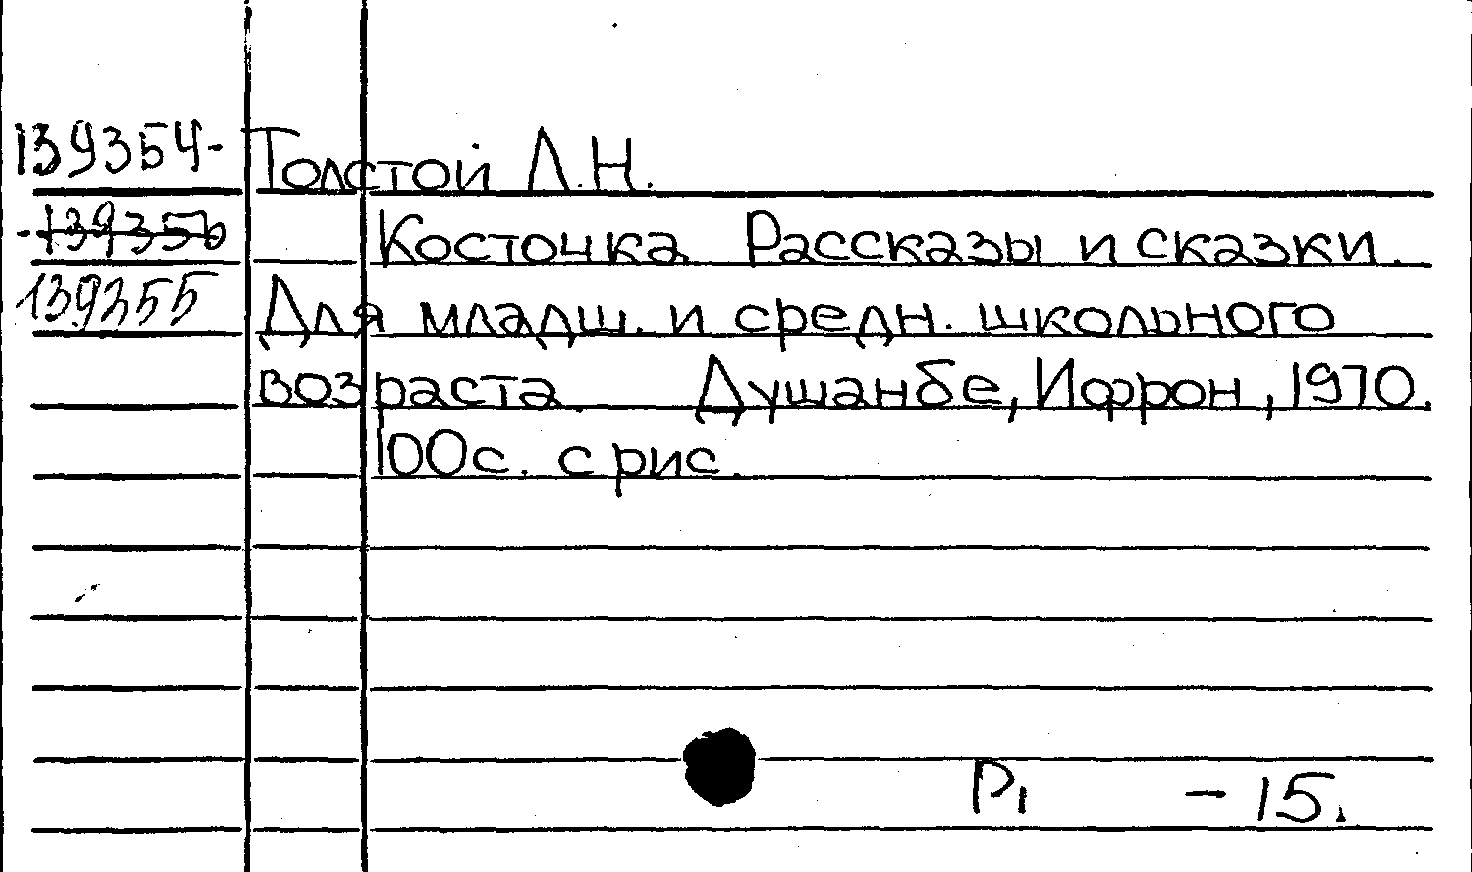 139354- Толстой Л.Н.
-139356 Косточка. Рассказы и сказки.
139355 Для младш. и средн. школьного
возраста. Душанбе, Ифрон, 1970.
100с. с рис.
Р1 - 15.